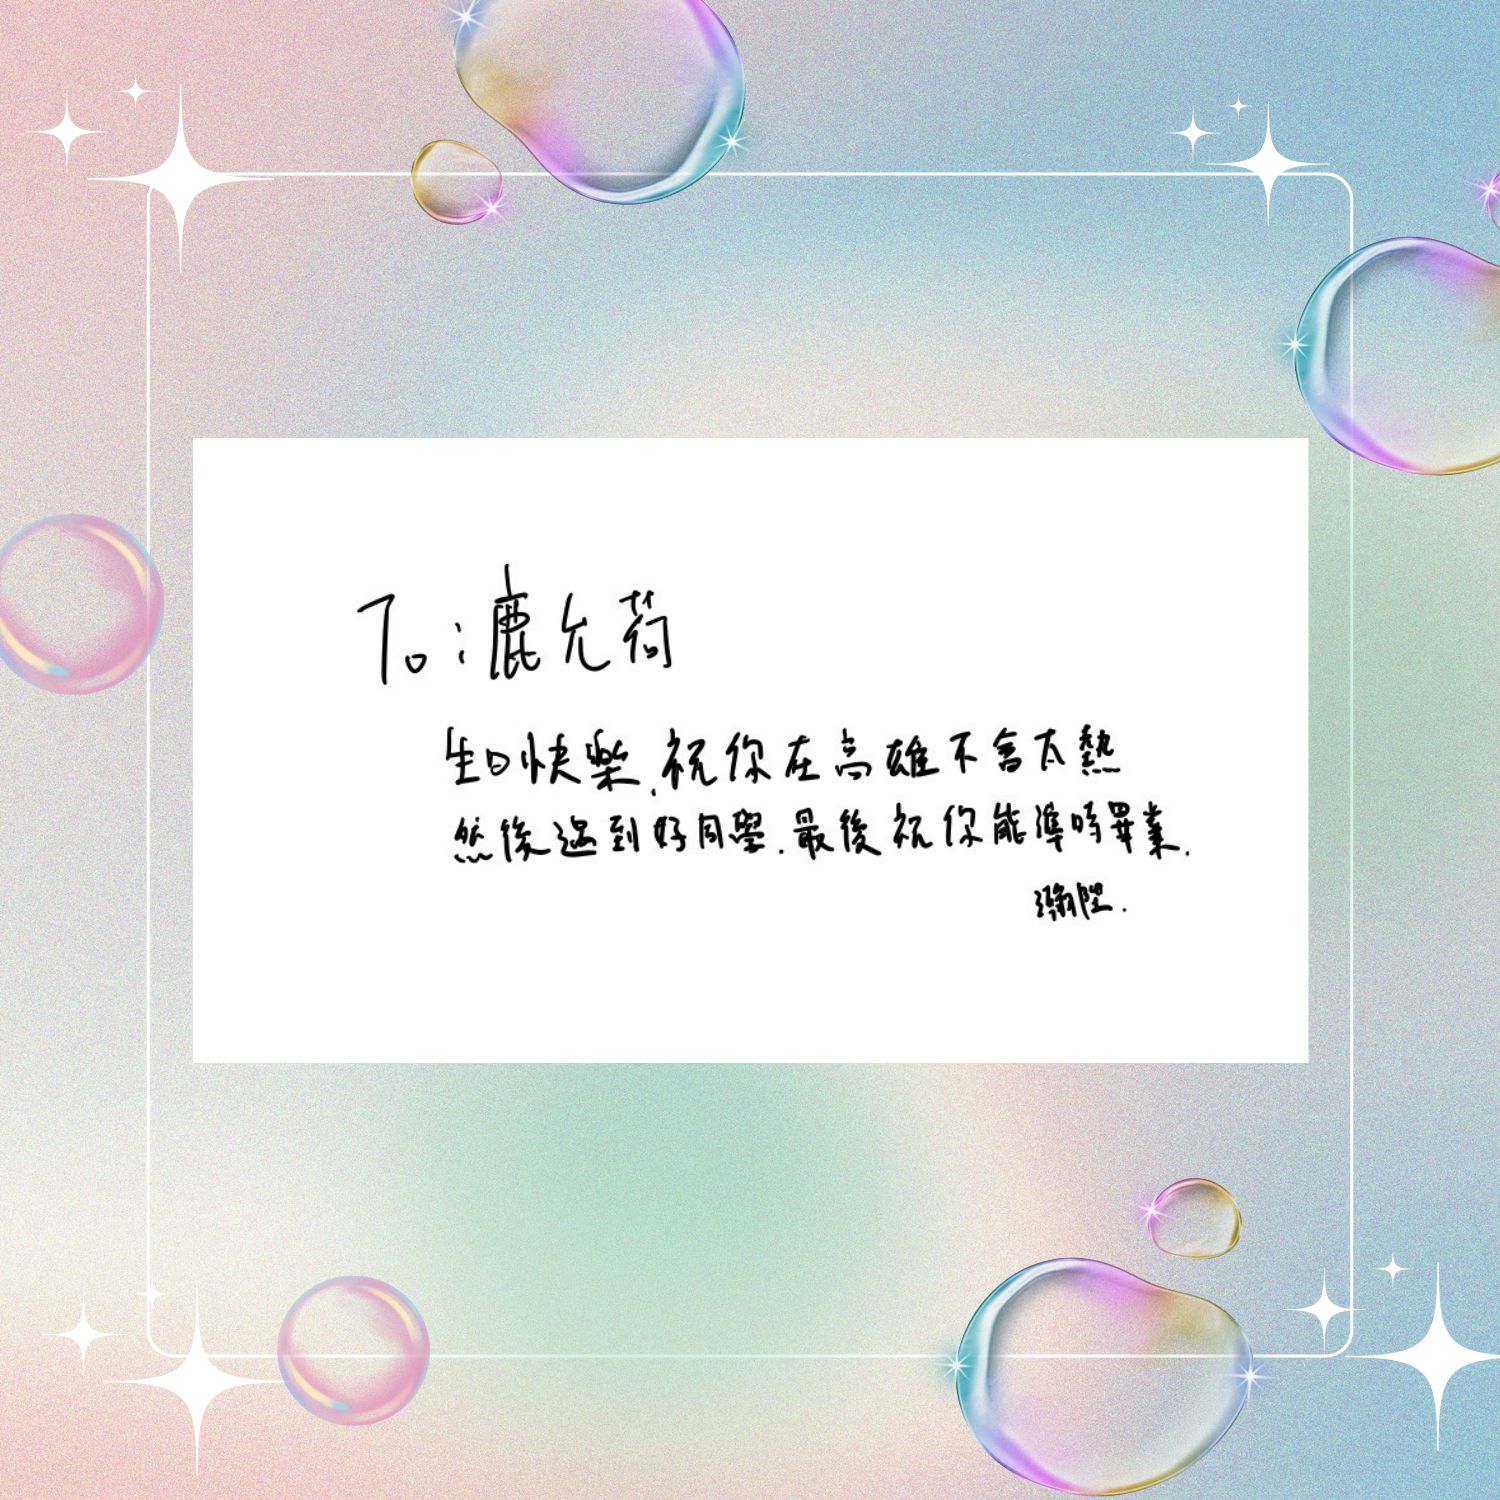 To：鹿允荷
生日快樂，祝你在高雄不會太熱
然後遇到好同學．最後祝你能準時畢業．
瀚陞．